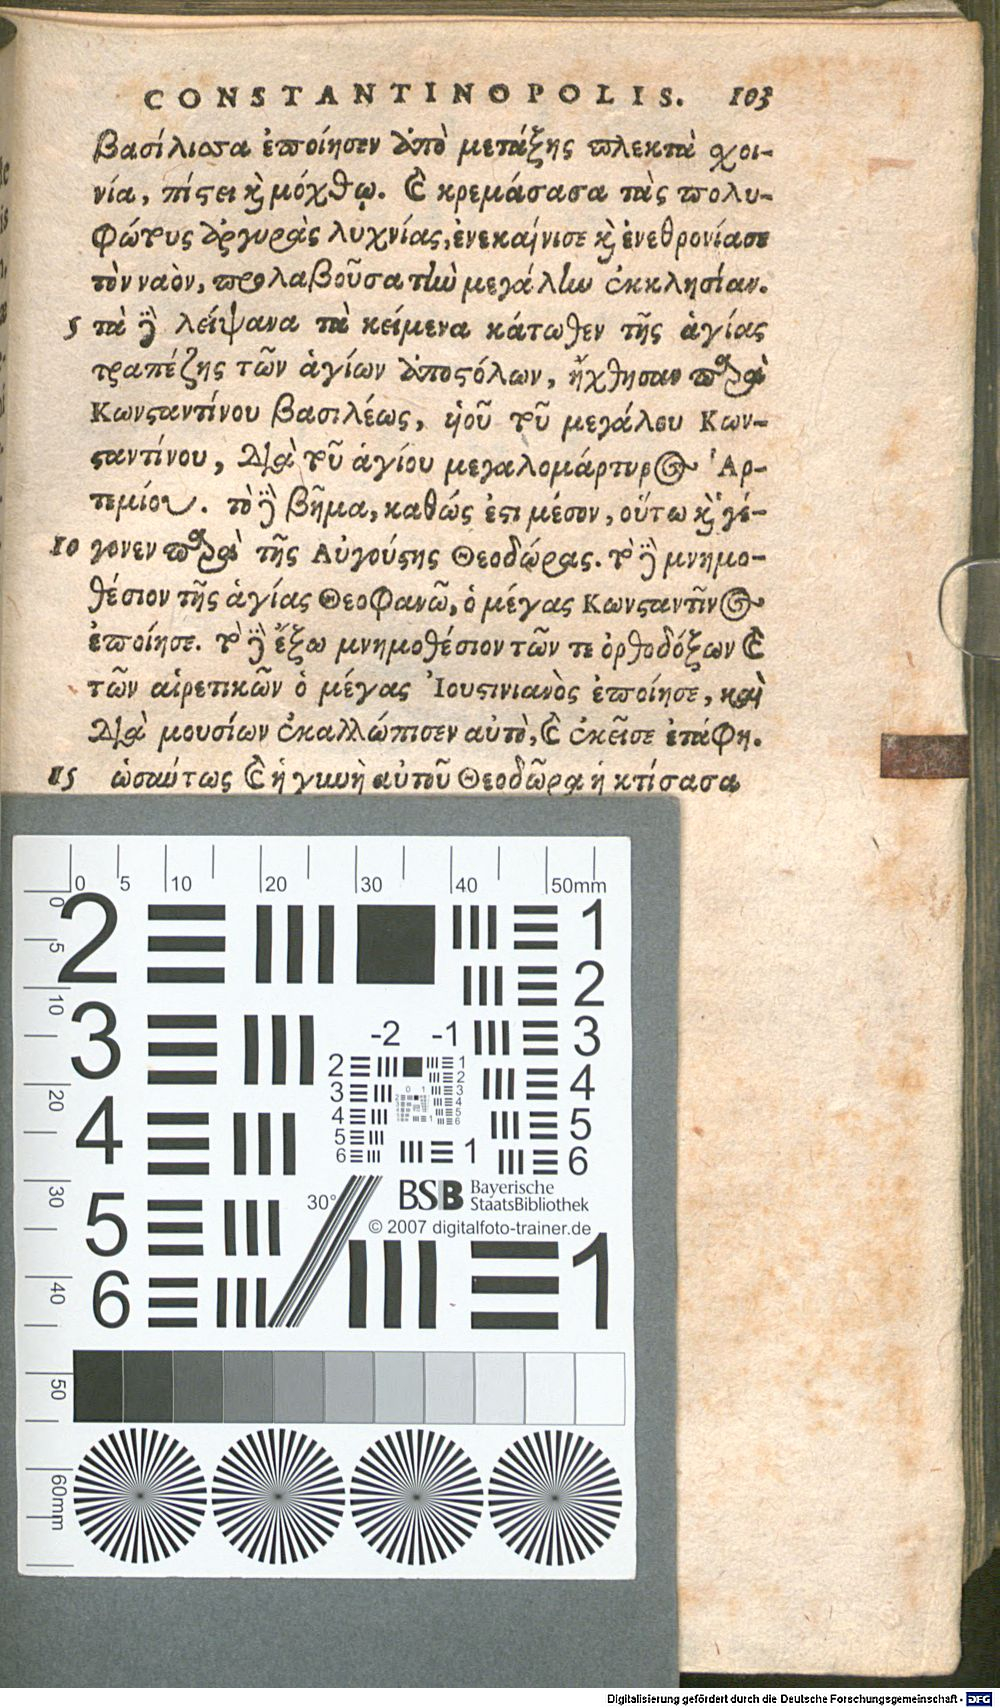 CONSTANTINOPOLIS. 103
βασίλισσα ἐποίησεν ἀπὸ μετάξης πλεκτὰ χοι-
νία, πίστει κὶ μόχθῳ. καὶ κρεμάσασα τὰς πολυ-
φώτους ἀργυρὰς λυχνίας, ἐνεκαίνισε κὶ ἐνεθρονίασε
τὸν ναὸν, προλαβοῦσα τὴν μεγάλην ἐκκλησίαν.
5 τὰ δὲ λείψανα τὰ κείμενα κάτωθεν τῆς ἁγίας
τραπέζης τῶν ἁγίων ἀποστόλων, ἤχθησαν παρὰ
Κωνσταντίνου βασιλέως, ὑοῦ τοῦ μεγάλου Κων-
σταντίνου, διὰ τοῦ ἁγίου μεγαλομάρτυρος Ἀρ-
τεμίου. τὸ δὲ βῆμα, καθώς ἐστι μέσον, οὕτω κὶ γέ-
10 γονεν παρὰ τῆς Αὐγούστης Θεοδώρας. τὸ δὲ μνημο-
θέσιον τῆς ἁγίας Θεοφανῶ, ὁ μέγας Κωνσταντῖνος
ἐποίησε. τὸ δὲ ἔξω μνημοθέσιον τῶν τε ὀρθοδόξων καὶ
τῶν αἱρετικῶν ὁ μέγας Ἰουστινιανὸς ἐποίησε, καὶ
διὰ μουσίων ἐκαλλώπισεν αὐτὸ, καὶ ἐκεῖσε ἐτάφη.
15 ὡσαύτως καὶ ἡ γυνὴ αὐτοῦ Θεοδῶρα ἡ κτίσασα
0 5 10 20 30 40 50mm
0 5 10 20 30 40 50 60mm
2 1
2
3 -2 -1 3
4 4
5 5
6 6
5 30°
6 1
BSB Bayerische
StaatsBibliothek
© 2007 digitalfoto-trainer.de
Digitalisierung gefördert durch die Deutsche Forschungsgemeinschaft - DFG